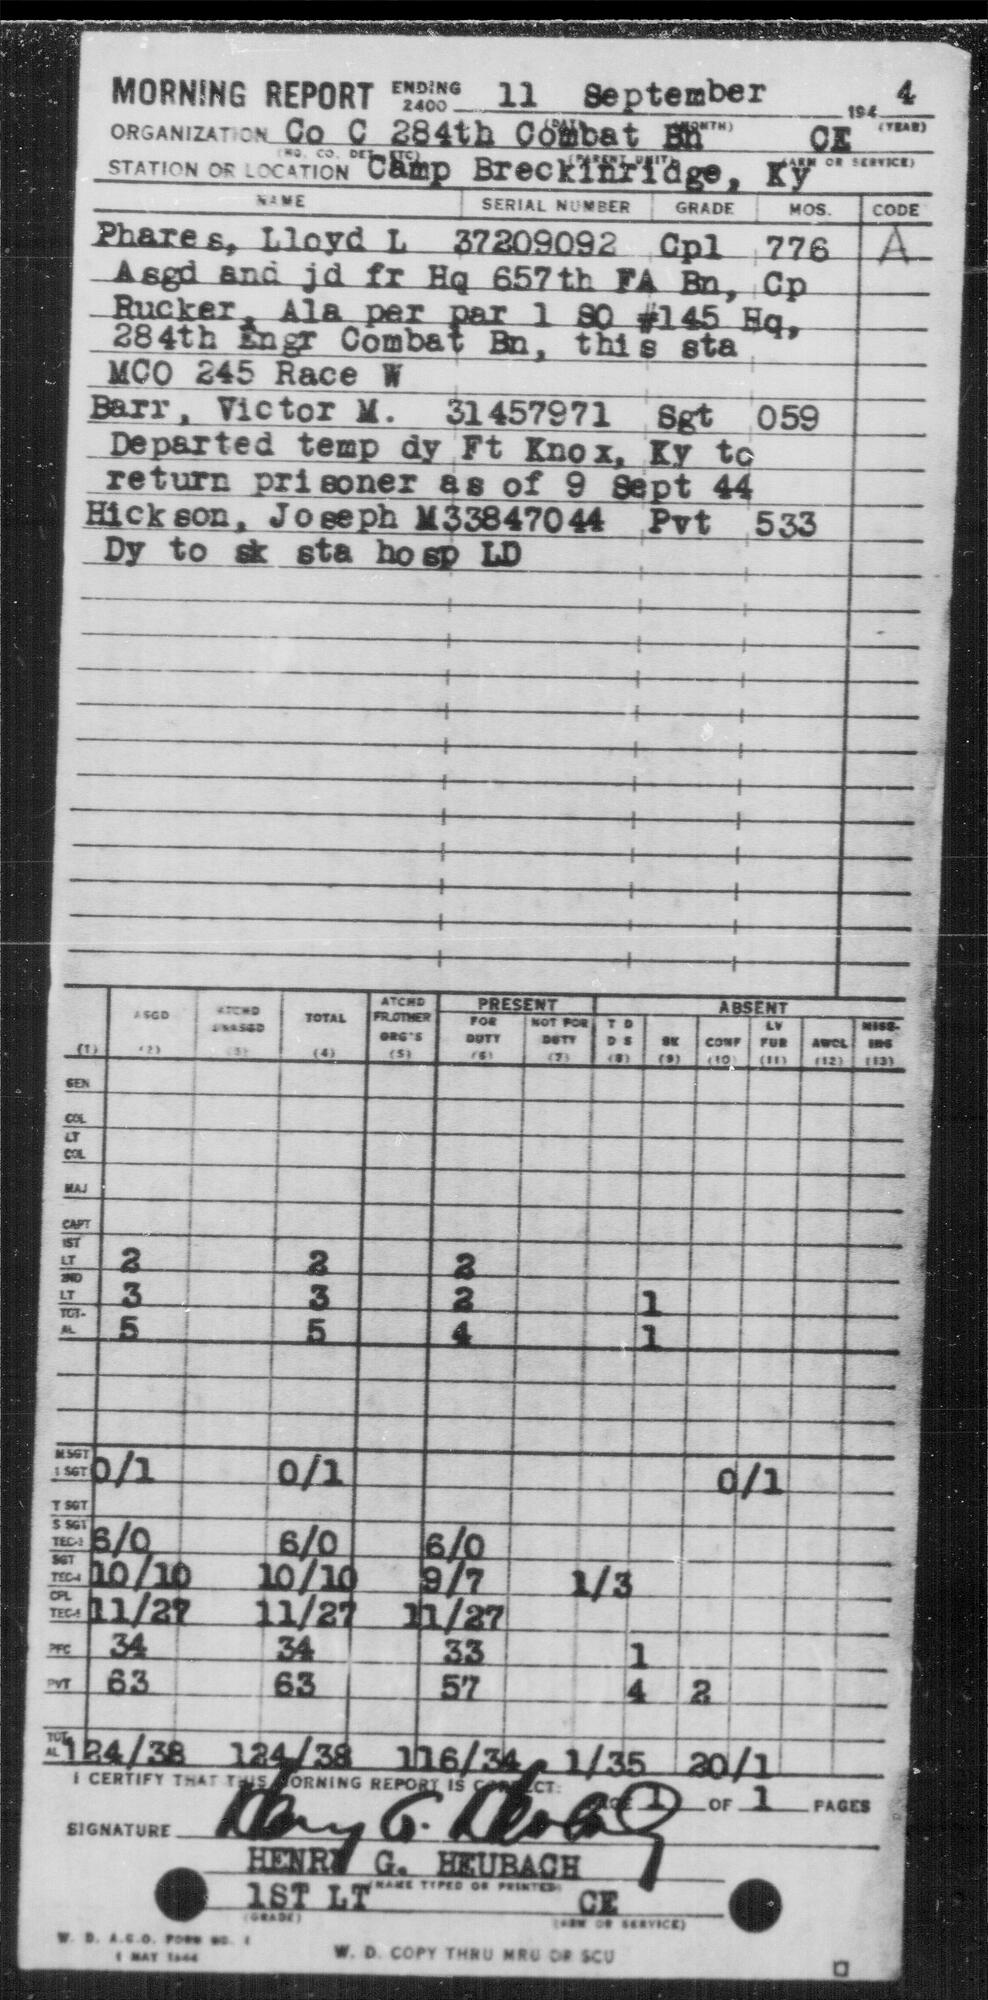 MORNING REPORT ENDING 2400 11 September 194 4
(DATE) (MONTH) (YEAR)
ORGANIZATION Co C 284th Combat Bn CE
(NO. CO. DET. ETC) (PARENT UNIT) (ARM OR SERVICE)
STATION OR LOCATION Camp Breckinridge, Ky
NAME SERIAL NUMBER GRADE MOS. CODE
Phares, Lloyd L 37209092 Cpl 776 A
Asgd and jd fr Hq 657th FA Bn, Cp
Rucker, Ala per par 1 SO #145 Hq,
284th Engr Combat Bn, this sta
MCO 245 Race W
Barr, Victor M. 31457971 Sgt 059
Departed temp dy Ft Knox, Ky to
return prisoner as of 9 Sept 44
Hickson, Joseph M 33847044 Pvt 533
Dy to sk sta hosp LD
PRESENT ABSENT
ASGD ATCHD UNASGD TOTAL ATCHD FR.OTHER ORG'S FOR DUTY NOT FOR DUTY T D D S SK CONF LV FUR AWOL MISS-ING
(1) (2) (3) (4) (5) (6) (7) (8) (9) (10) (11) (12) (13)
GEN
COL
LT COL
MAJ
CAPT
1ST LT 2 2 2
2ND LT 3 3 2 1
TOT-AL 5 5 4 1
M SGT
1 SGT 0/1 0/1 0/1
T SGT
S SGT
TEC-3 6/0 6/0 6/0
SGT
TEC-4 10/10 10/10 9/7 1/3
CPL
TEC-5 11/27 11/27 11/27
PFC 34 34 33 1
PVT 63 63 57 4 2
TOT-AL 124/38 124/38 116/34 1/35 20/1
I CERTIFY THAT THIS MORNING REPORT IS CORRECT: PAGE 1 OF 1 PAGES
SIGNATURE Henry G. Heubach
HENRY G. HEUBACH
(NAME TYPED OR PRINTED)
1ST LT CE
(GRADE) (ARM OR SERVICE)
W. D. A.G.O. FORM NO. 1
1 MAY 1944
W. D. COPY THRU MRU OR SCU